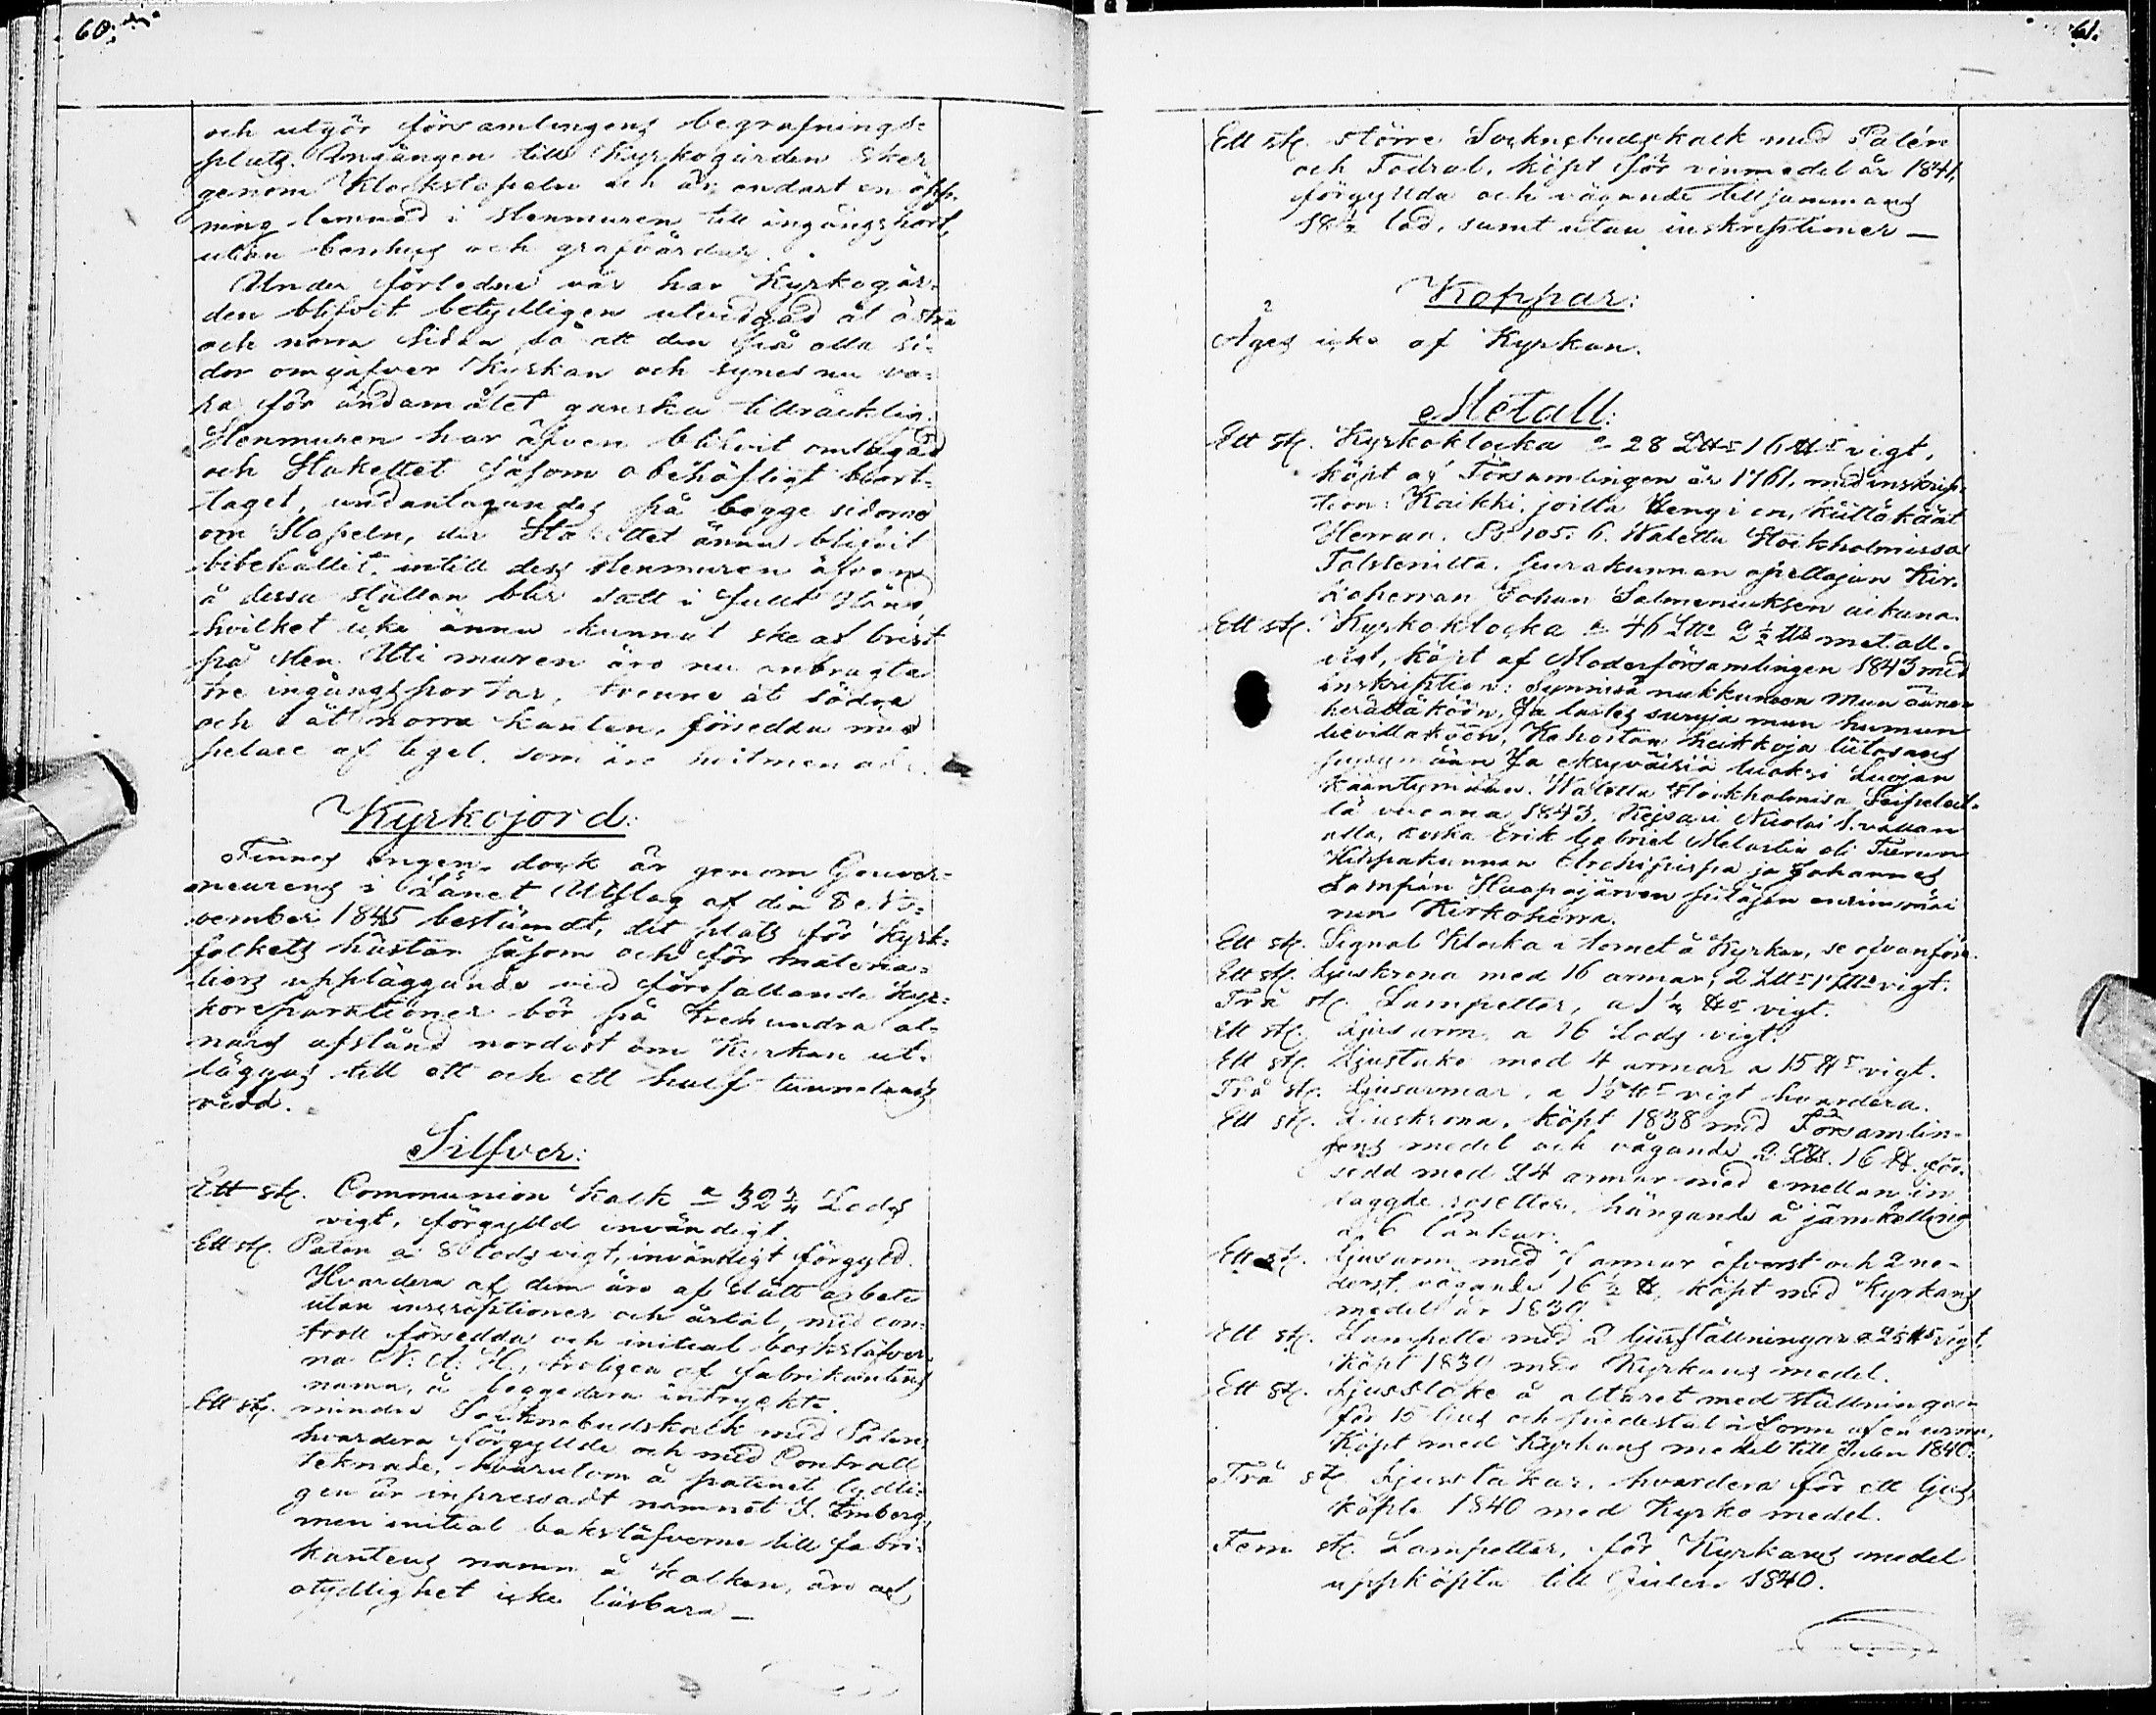 60.
och utgör församlingens begrafnings-
plats. Ingången till Kyrkogården sker
genom Klockstapeln och är endast en öpp-
ning lemnad i stenmuren till ingångsport,
utan benhus och grafvårdar.
Under förledne vår har Kyrkogår-
den blifvit betydligen utvidgad åt östra
och norra sidan så att den på alla si-
dor omgifver Kyrkan och synes nu va-
ra för ändamålet ganska tillräcklig.
Stenmuren har äfven blifvit omlagad
och Stakettet såsom obehöfligt bort-
taget, undantagandes på begge sidorna
om Stapeln, der Stakettet ännu blifvit
bibehållit, intill dess stenmuren äfven
å dessa ställen blir satt i fullt stånd
hvilket icke ännu kunnat ske af brist
på sten. Uti muren äro nu anbragta
tre ingångsportar, tvenne åt södra
och 1 åt norra kanten, försedda med
pelare af tegel, som äro hvitmenade.
Kyrkojord:
Finnes ingen, dock är genom Gouver-
neurens i Länet Utslag af den 8 No-
vember 1845 bestämdt, det plats för Kyrk-
folkets hästar såsom och för materia-
liers uppläggande vid förefallande Kyr-
koreparationer bör på trehundra al-
nars afstånd nordost om Kyrkan ut-
läggas till ett och ett half tunnelands
vidd.
Silfver:
Ett st. Communion Kalk a 32 3/4 Lods
vigt, förgylld invändigt.
Ett st. Paten a 8 lods vigt, invändigt förgyld.
Hvardera af dem äro af slätt arbete
utan inscriptioner och årtal, med con-
troll försedda och initial bokstäfver-
na N: A: H., troligen af fabrikantens
namn, å beggedera intryckte.
Ett st. mindre Socknebudskalk med Paten,
hvardera förgyllde och med Controll
teknade, hvarutom å patenet tydli-
gen är inpressadt namnet J. Emberg,
men initial bokstäfverne till fabri-
kantens namn å Kalken, äro af
otydlighet icke läsbara —
61.
Ett st. större Socknebudskalk med Patén
och Fodral, köpt för vinmedel år 1841,
förgyllda och vägande tilljammans
18 1/2 lod, samt utan inskriptioner —
Koppar:
Äges icke af Kyrkan.
Metall:
Ett st. Kyrkoklocka a 28 L℔ 16 ℔ vigt,
köpt af Församlingen år 1761, med inskrip-
tion: Kaikki, joilla Hengi on, kiittäkäät
Herran. Ps. 105: 6. Waletta Stockholmissa
Seurakunnan opettajan Kir-
koherran Johan Salmeniuksen aikana.
Ett st. Kyrkoklocka a 46 L℔ 2 1/2 ℔ metall-
vigt, köpt af Moderförsamlingen 1843 med
inskription: Synnissä nukkuneen mun ääne-
herättäköön, Ja lastes suruja mun humun
lievittäköön, Kohostan kaikkoja
Ja
Waletta Stockholmisa
vuonna 1843, Kejsari Nicolai 1. vallan
alla, koska Erik Gabriel Melartin oli Turun
Hiippakunnan Archipiispa ja Johannes
Lampén Haapajärven pitäjän ensimmäi-
nen Kirkoherra.
Ett st. Signal Klocka i tornet å Kyrkan, se ofvanföre.
Ett st. Ljuskrona med 16 armar, 2 L℔ 1 ℔ vigt.
Två st. Lampetter, a 1 1/2 ℔ vigt.
Ett st. Ljusarm, a 26 Lods vigt.
Ett st. Ljustake med 4 armar a 15 ℔ vigt.
Två st. Ljusarmar, a 1 1/2 ℔ vigt hvardera.
Ett st. Ljuskrona, köpt 1838 med Församlin-
gens medel och vägande 2 L℔. 16 ℔. för-
sedd med 24 armar med emellan in-
laggde rosetter, hängande å järnkätting
af 6 länkar.
Ett st. Ljusarm med armar öfverst och 2 ne-
derst, vägande 16 1/2 ℔, köpt med Kyrkans
medel år 1839.
Ett st. Lampette med 2 ljusställningar a 25 ℔ vigt,
köpt 1839 med Kyrkans medel.
Ett st. Ljusstake å altaret med ställningar
för 15 ljus och piedestal i form af en urna,
köpt med Kyrkans medel till Julen 1840.
Två st. Ljusstakar, hvardera för ett ljus,
köpte 1840 med Kyrko medel.
Fem st. Lampetter, för Kyrkans medel
uppköpta till Julen 1840.